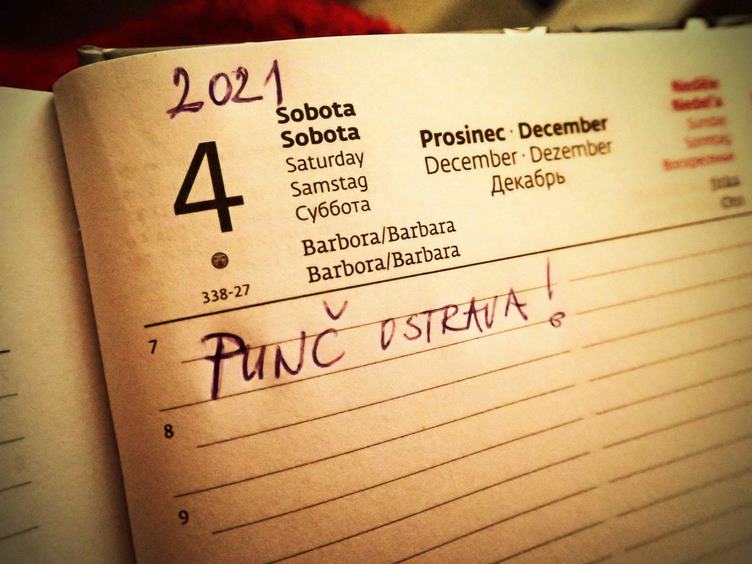 2021
4
Sobota
Sobota
Saturday
Samstag
Суббота
Prosinec · December
December · Dezember
Декабрь
Barbora/Barbara
Barbora/Barbara
338-27
Neděle
Nedeľa
Sunday
Sonntag
Воскресенье
Jitka
7
PUNČ OSTRAVA!
8
9